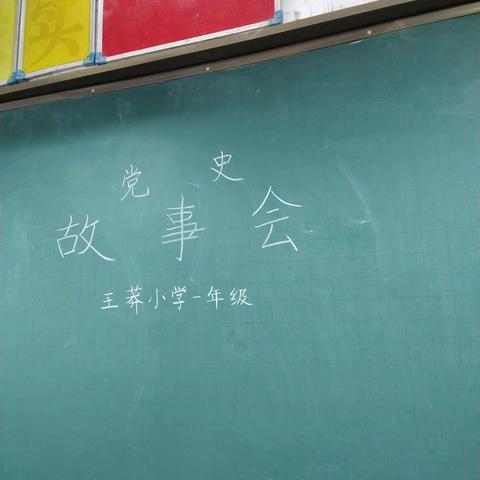 实
党史
故事会
王莽小学一年级